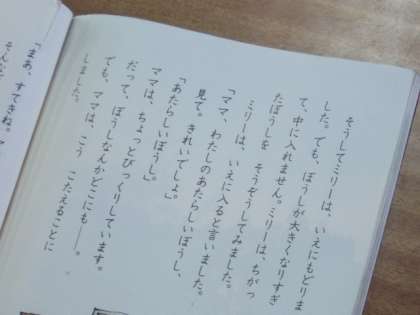 そうしてミリーは、いえにもどりま
した。でも、ぼうしが大きくなりすぎ
て、中に入れません。ミリーは、ちがっ
たぼうしを　そうぞうしてみました。
ミリーは、いえに入ると言いました。
「ママ、わたしのあたらしいぼうし、
見て。きれいでしょ。」
「あたらしいぼうし。」
ママは、ちょっとびっくりしています。
だって、ぼうしなんかどこにも――。
でも、ママは、こう　こたえることに
しました。
「まあ、すてきね。